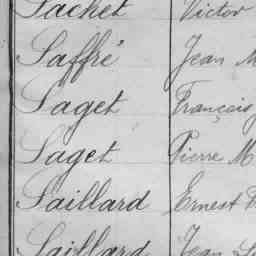 Sachet Victor
Saffré Jean M
Saget François
Saget Pierre M
Saillard Ernest
Saillard Jean